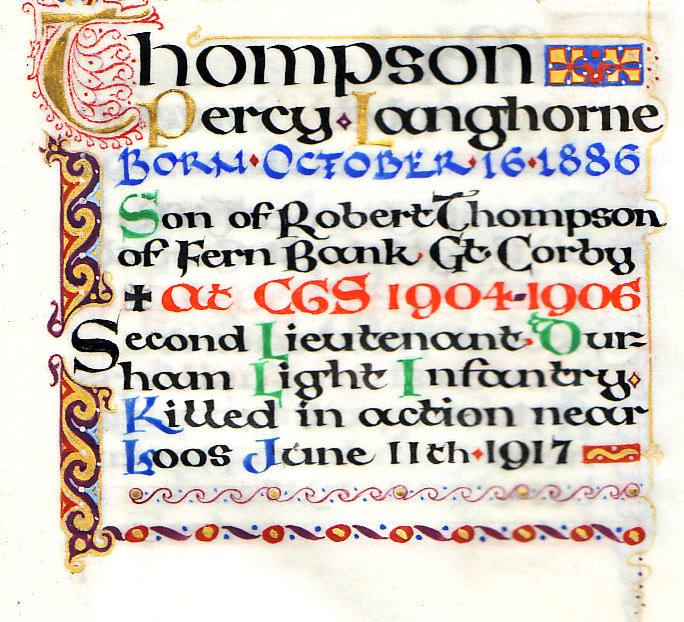 Thompson
Percy Langhorne
BORN · OCTOBER · 16 · 1886
Son of Robert Thompson
of Fern Bank Gt. Corby
✝ at CGS 1904-1906
Second Lieutenant Dur=
ham Light Infantry
Killed in action near
Loos June 11th · 1917